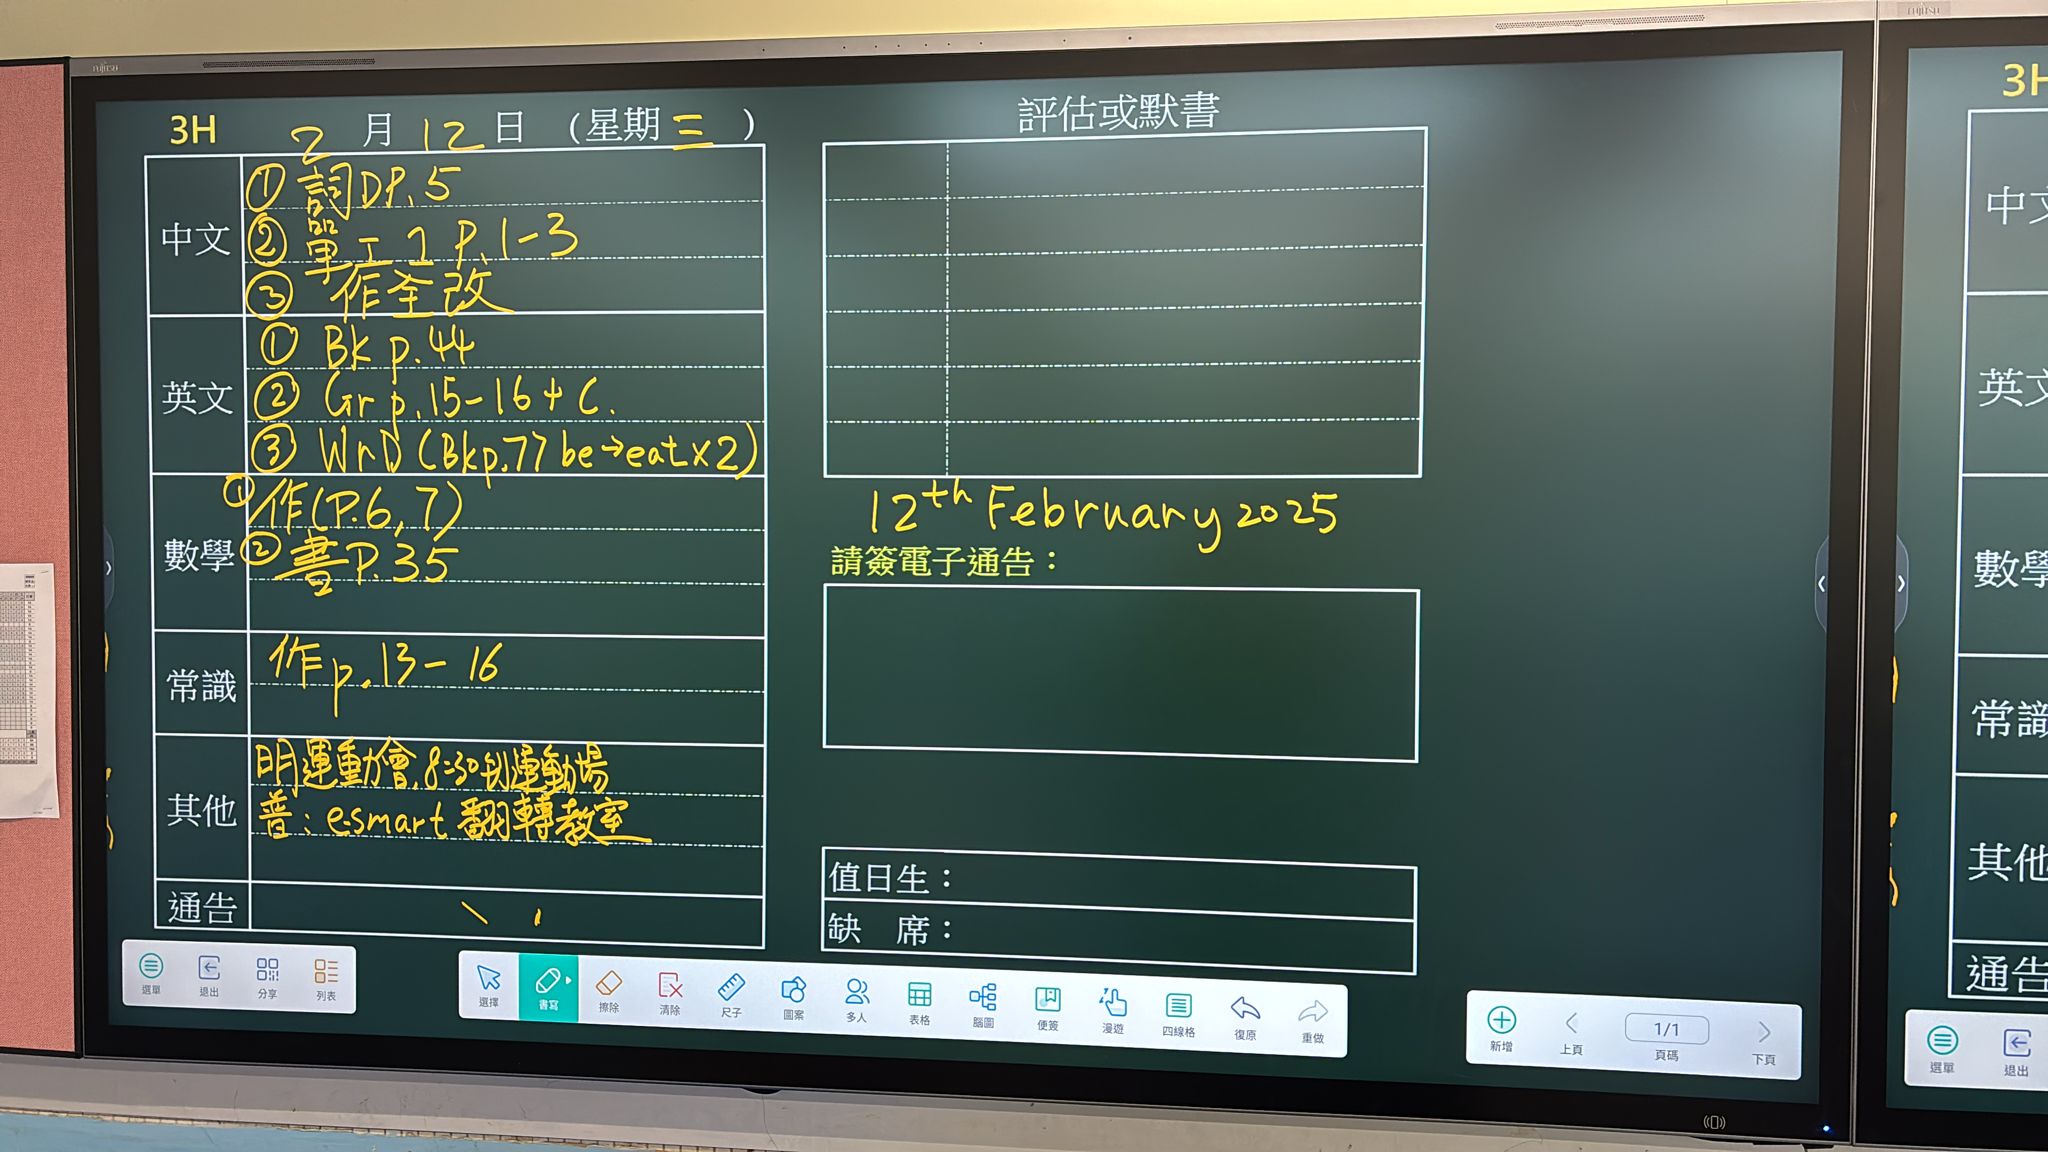 FUJITSU
3H 2 月 12 日 (星期 三 )
中文
① 詞DP.5
② 單工1 P.1-3
③ 作全改
英文
① Bk p.44
② Gr p.15-16 + C.
③ WrD (Bk p.77 be→eat x2)
數學
① 作(P.6,7)
② 書P.35
常識
作p.13-16
其他
明運動會,8:30到運動場
普: e-smart 翻轉教室
通告
評估或默書
12th February 2025
請簽電子通告：
值日生：
缺 席：
選單
退出
分享
列表
選擇
書寫
擦除
清除
尺子
圖案
多人
表格
腦圖
便簽
漫遊
四線格
復原
重做
新增
上頁
1/1
頁碼
下頁
FUJITSU
3H
中文
英文
數學
常識
其他
通告
選單
退出